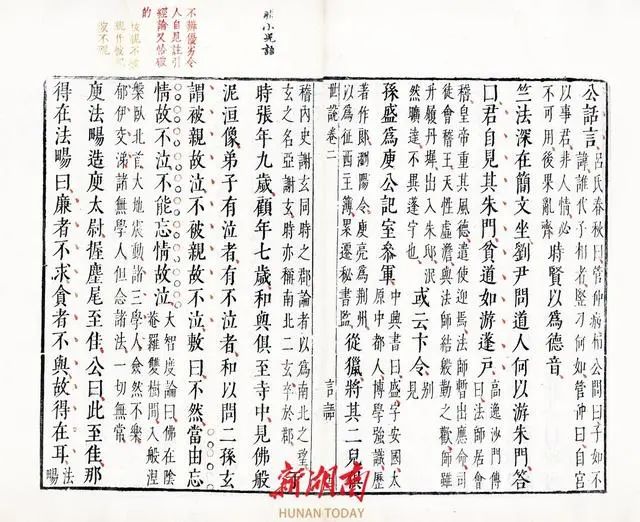 小児語
不辨優劣令
人自見註引
經論又恰破
的
公話言呂氏春秋曰管仲病桓公問曰子如不
諱誰代子相者豎刁何如管仲曰自宮
以事君非人情必
不可用後果亂齊時賢以為德音
竺法深在簡文坐劉尹問道人何以游朱門答
曰君自見其朱門貧道如游蓬戶高逸沙門傳
曰法師居會
稽皇帝重其風德遣使迎焉法師暫出應命司
徒會稽王天性虛澹與法師結殷勤之歡師雖
升履丹墀出入朱邸泯
然曠達不異蓬宇也或云卞令別見
孫盛為庾公記室參軍中興書曰盛字安國太
原中都人博學強識歷
著作郎瀏陽令庾亮為荊州
以為征西主簿累遷秘書監從獵將其二兒俱
世說卷二
言語
稽內史謝玄同時之郡論者以為南北之望
玄之名亞謝玄時亦稱南北二玄卒於郡
時張年九歲顧年七歲和與俱至寺中見佛般
泥洹像弟子有泣者有不泣者和以問二孫玄
謂被親故泣不被親故不泣敷曰不然當由忘
情故不泣不能忘情故泣大智度論曰佛在陰
菴羅雙樹間入般涅
槃臥北首大地震動諸三學人僉然不樂
郁伊交涕諸無學人但念諸法一切無常
庾法暢造庾太尉握麈尾至佳公曰此至佳那
得在法暢曰廉者不求貪者不與故得在耳法
暢
新湖南
HUNAN TODAY